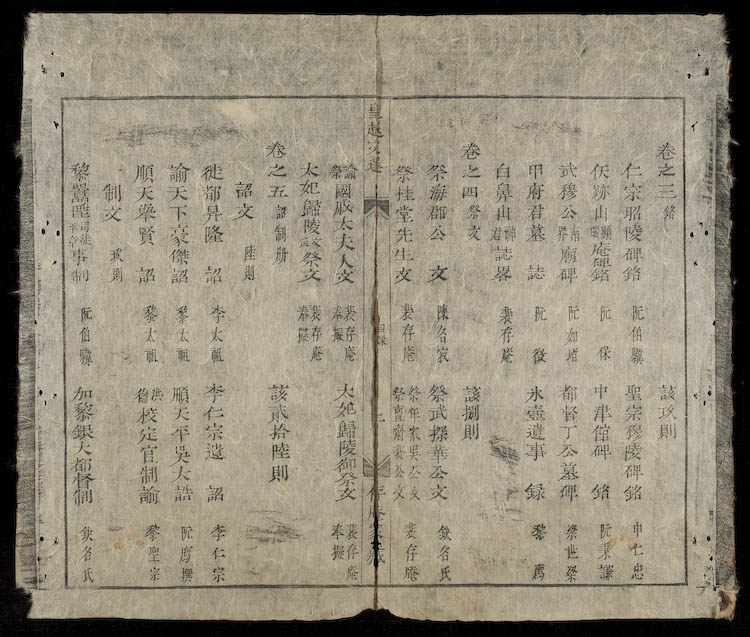 卷之三 銘 該玖則
仁宗昭陵碑銘 阮伯驥 聖宗穆陵碑銘 申仁忠
仸跡山顯瑞庵碑銘 阮保 中津館碑銘 阮秉謙
武穆公南界廟碑 阮如堵 都督丁公墓碑 梁世榮
甲府君墓誌 阮徵 氷壺遺事録 黎廌
白鼻山神君誌畧 裴存庵
卷之四 祭文 該捌則
祭海郡公文 陳名寀 祭武探華公文 缺名氏
祭桂堂先生文 裴存庵 祭年家吳公文 祭直齋裴公文 裴存庵
皇越文選 目録 三 存庵家藏
諭祭國戚太夫人文 裴存庵奉擬 太妃歸陵御祭文 裴存庵奉擬
太妃歸陵文武祭文 裴存庵奉擬
卷之五 詔制册 該貳拾陸則
詔文 陸則
徙都昇隆詔 李太祖 李仁宗遺詔 李仁宗
諭天下豪傑詔 黎太祖 順天平吳大誥 阮廌撰
順天舉賢詔 黎太祖 洪德校定官制諭 黎聖宗
制文 玖則
黎囂陞司徒平章事制 阮伯驥 加黎銀大都督制 缺名氏